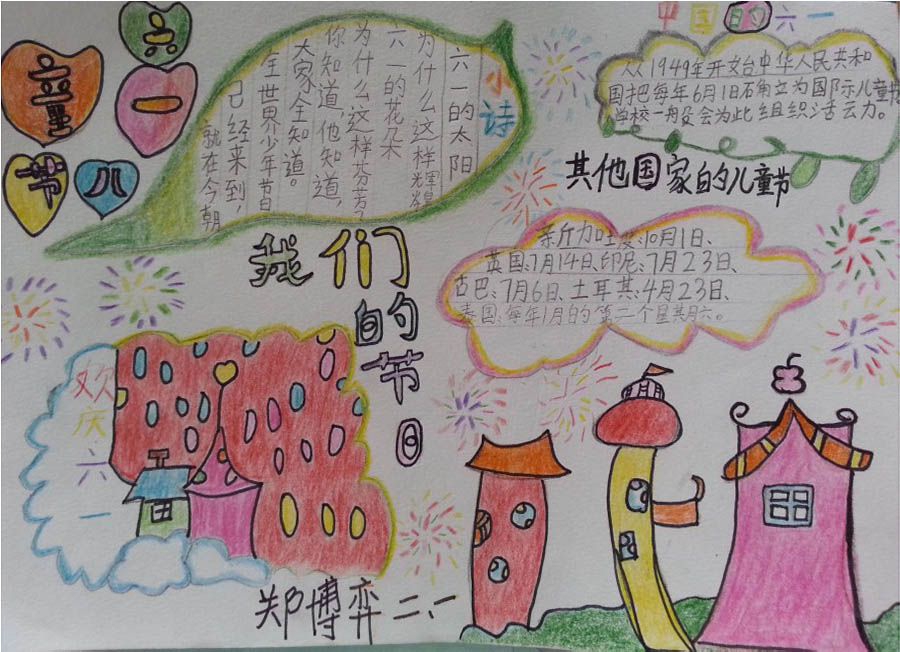 六一儿童节
小诗
六一的太阳
为什么这样辉煌
六一的花朵
为什么这样芬芳?
你知道,他知道,
大家全知道。
全世界少年节日
已经来到,
就在今朝
中国的六一
从1949年开始中华人民共和
国把每年6月1日确立为国际儿童节
学校一般会为此组织活动。
其他国家的儿童节
新加坡:10月1日、
英国:7月14日、印尼:7月23日、
古巴:7月6日、土耳其:4月23日、
泰国:每年1月的第二个星期六。
我们
的节日
欢庆六一
郑博弈 二、一